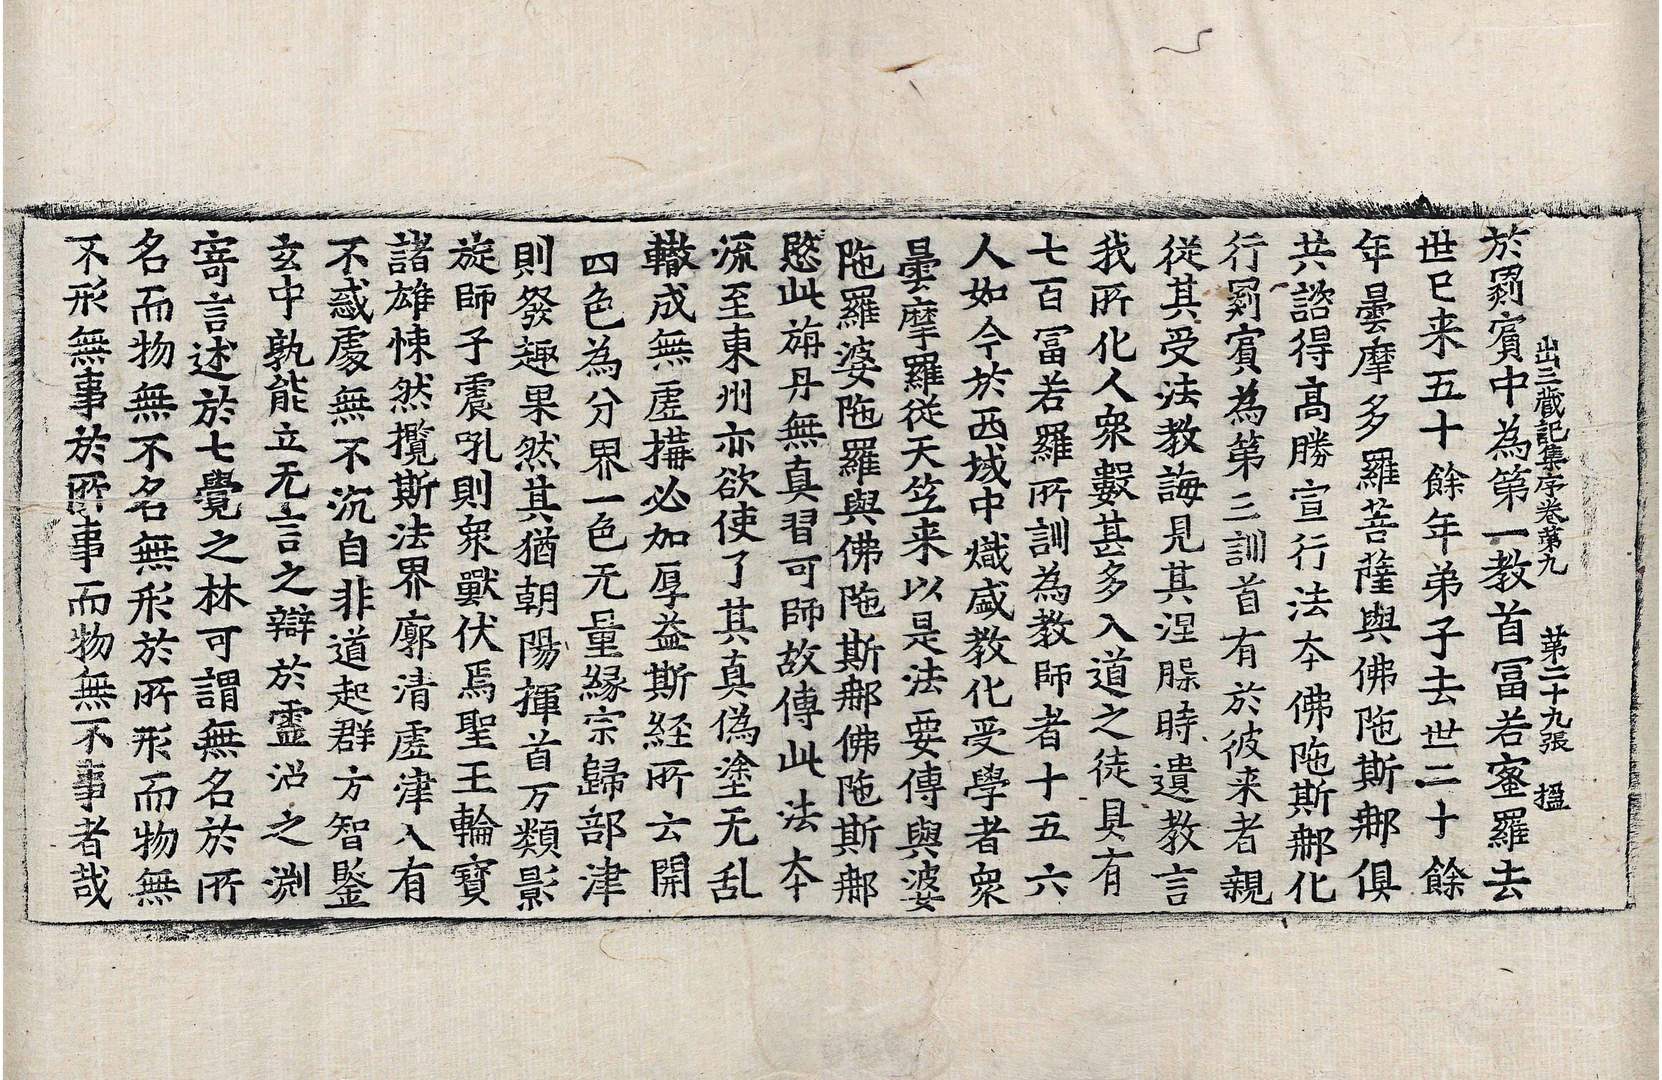 出三藏記集序卷第九 第二十九張 揾
於罽賓中為第一教首冨若蜜羅去
世已来五十餘年弟子去世二十餘
年曇摩多羅菩薩與佛陁斯那俱
共諮得髙勝宣行法夲佛陁斯那化
行罽賓為第三訓首有於彼来者親
從其受法教誨見其涅䐈時遺教言
我所化人衆數甚多入道之徒具有
七百冨若羅所訓為教師者十五六
人如今於西域中熾盛教化受學者衆
曇摩羅從天竺来以是法要傳與婆
陁羅婆陁羅與佛陁斯那佛陁斯那
愍此旃丹無真習可師故傳此法夲
流至東州亦欲使了其真偽塗无乱
轍成無虛搆必加厚益斯経所云開
四色為分界一色无量緣宗歸部津
則發趣果然其猶朝陽揮首万類影
旋師子震吼則衆獸伏焉聖王輪寶
諸雄悚然攬斯法界廓清虛津入有
不惑處無不沉自非道起群方智鑒
玄中孰能立无言之辯於靈沼之渊
寄言述於七覺之林可謂無名於所
名而物無不名無形於所形而物無
不形無事於所事而物無不事者哉